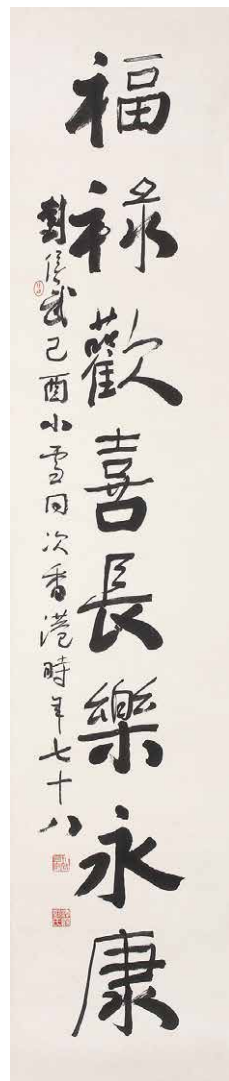 福祿歡喜長樂永康
劉侯武己酉小雪同次香港時年七十八